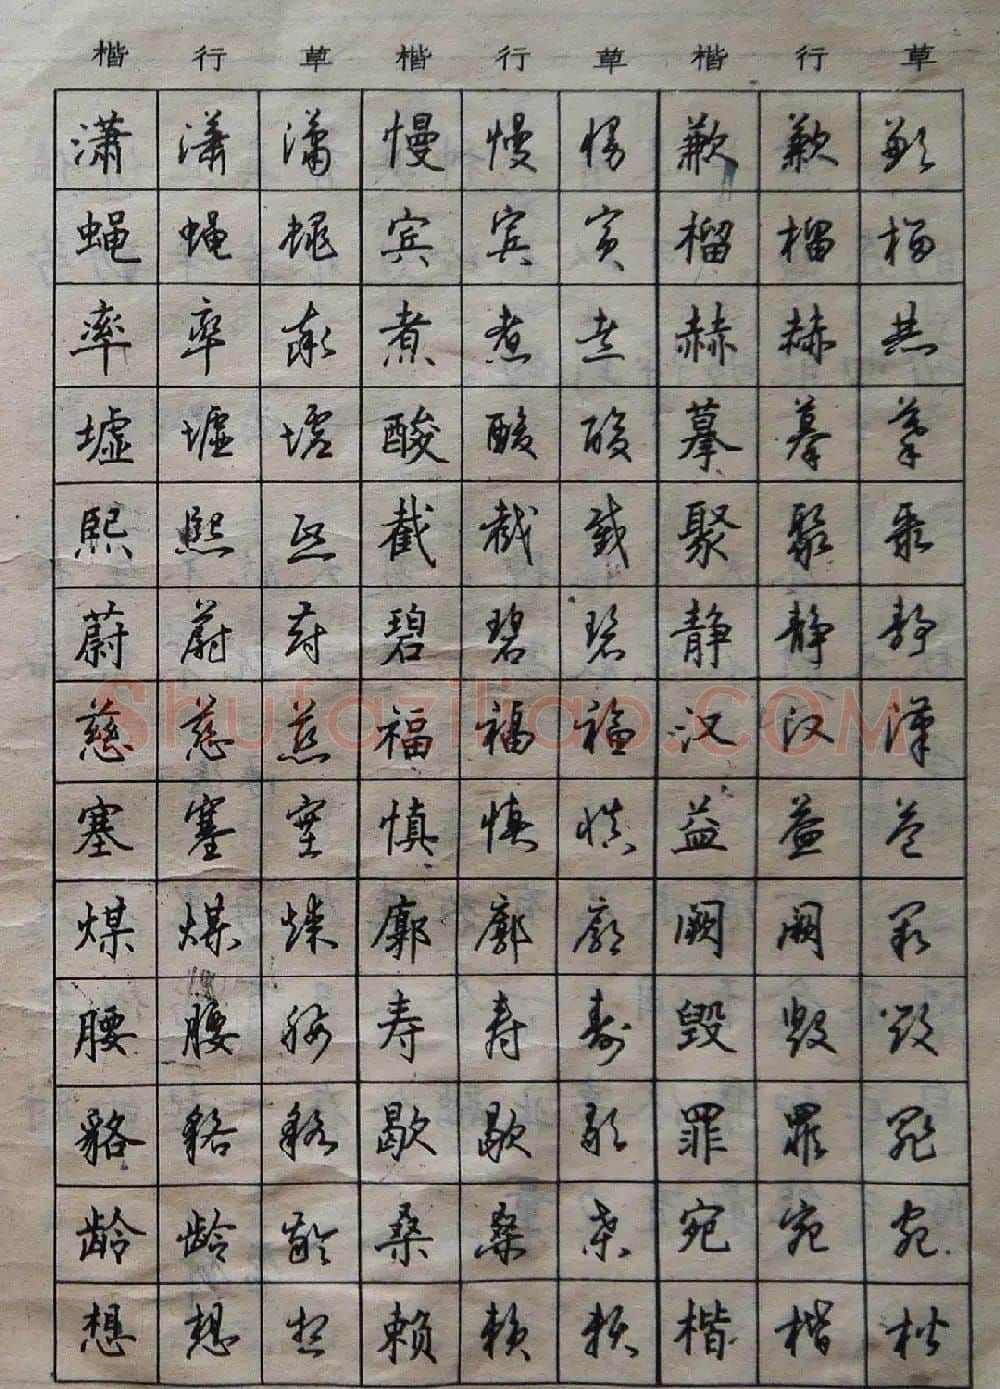 楷 行 草 楷 行 草 楷 行 草
潇 潇 潇 慢 慢 慢 歉 歉 歉
蝇 蝇 蝇 宾 宾 宾 榴 榴 榴
率 率 率 煮 煮 煮 赫 赫 赫
墟 墟 墟 酸 酸 酸 摹 摹 摹
熙 熙 熙 截 截 截 聚 聚 聚
蔚 蔚 蔚 碧 碧 碧 静 静 静
慈 慈 慈 福 福 福 汉 汉 汉
Shufaziliao.COM
塞 塞 塞 慎 慎 慎 益 益 益
煤 煤 煤 廓 廓 廓 阙 阙 阙
腰 腰 腰 寿 寿 寿 毁 毁 毁
貉 貉 貉 歇 歇 歇 罪 罪 罪
龄 龄 龄 桑 桑 桑 宛 宛 宛
想 想 想 赖 赖 赖 楷 楷 楷